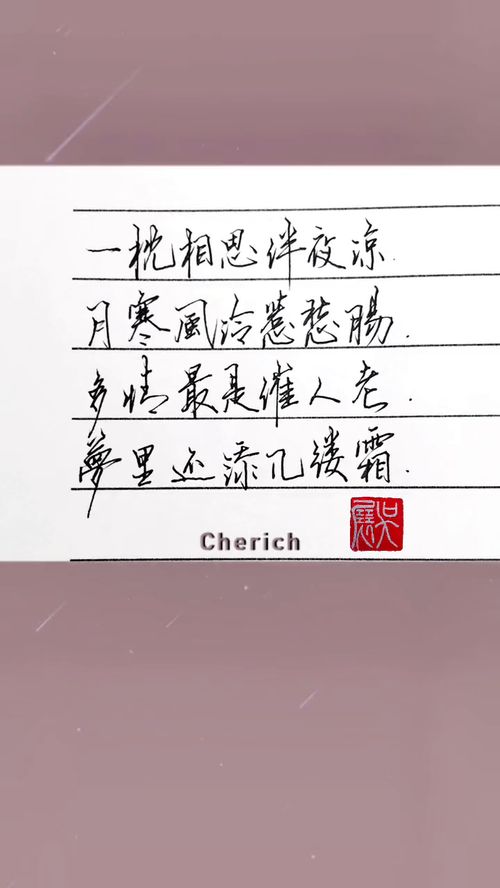 一枕相思伴夜凉.
月寒風冷惹愁腸.
多情最是催人老.
夢里还添几缕霜.
Cherich